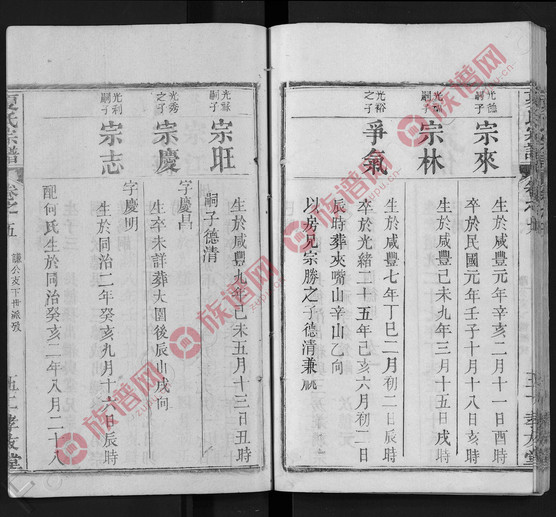 宗來
生於咸豐元年辛亥二月十一日酉時
卒於民國元年壬子十月十八日亥時
宗林
生於咸豐己未九年三月十六日戌時
光裕之子
爭氣
生於咸豐七年丁巳二月初二日辰時
卒於光緒二十五年己亥六月初二日
辰時葬夾嘴山辛山乙向
以房兄宗勝之子德清兼祧
嗣子
宗旺
生於咸豐九年己未五月十三日丑時
嗣子德清
光秀之子
宗慶
字慶昌
生卒未詳葬大園後辰山戌向
光利嗣子
宗志
字慶明
生於同治二年癸亥九月十六日辰時
配何氏生於同治癸亥二年八月二十八
夏氏宗譜
卷之五
謙公支下世派
五二 孝友堂
族谱网
族谱网
族谱网